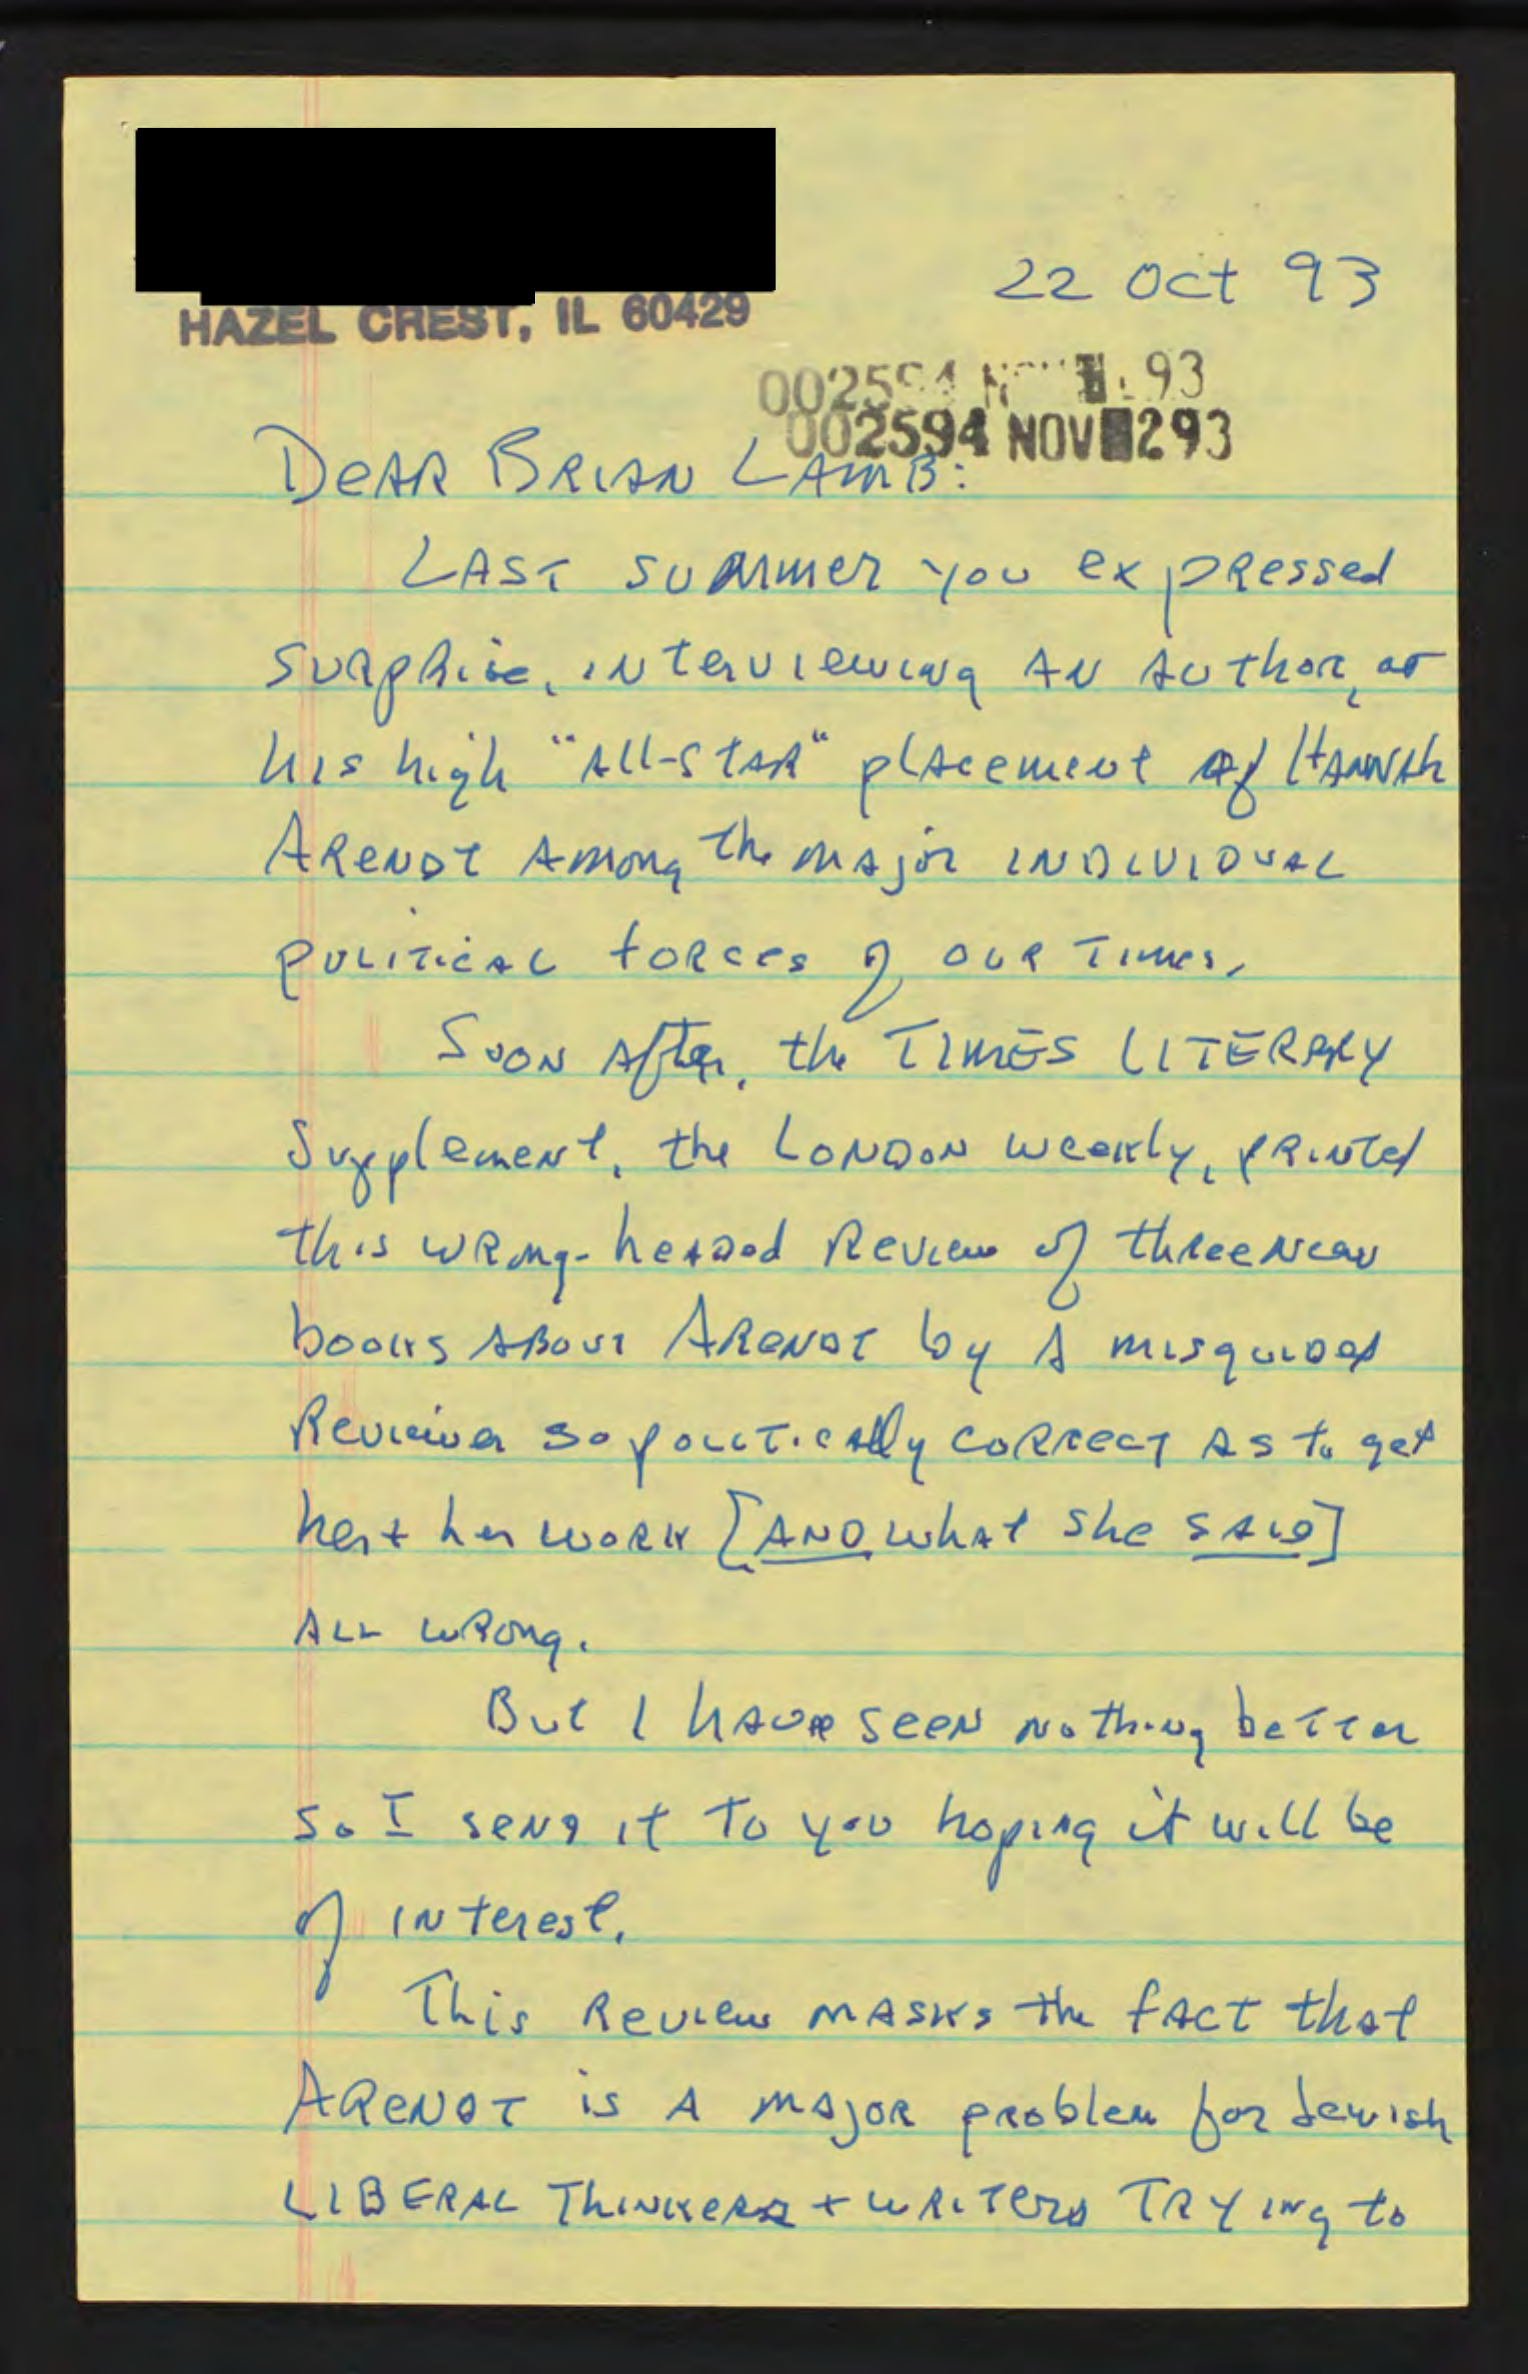 HAZEL CREST, IL 60429
22 Oct 93
002594 NOV 93
002594 NOV 293
Dear Brian Lamb:
Last summer you expressed
surprise, interviewing an author, at
his high "all-star" placement of Hannah
Arendt among the major individual
political forces of our times.
Soon after, the TIMES LITERARY
Supplement, the London weekly, printed
this wrong-headed review of three new
books about Arendt by a misguided
reviewer so politically correct as to get
her + her work [AND what she said]
all wrong.
But I have seen nothing better
so I send it to you hoping it will be
of interest.
This review masks the fact that
Arendt is a major problem for Jewish
LIBERAL thinkers + writers trying to